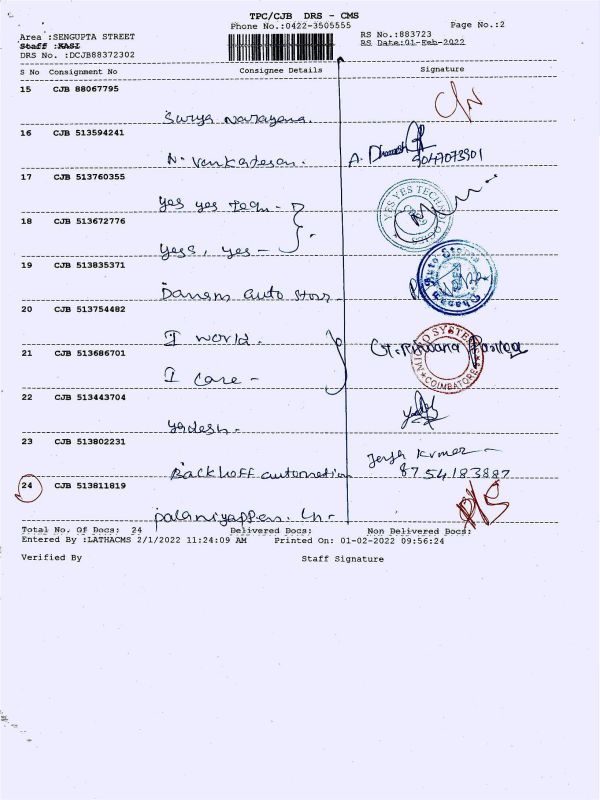 TPC/CJB DRS - CMS
Phone No.:0422-3505555 Page No.:2
Area :SENGUPTA STREET RS No.:883723
Staff :KASI RS Date:01-Feb-2022
DRS No. :DCJB88372302
S No Consignment No Consignee Details Signature
15 CJB 88067795
Surya Narayana.
16 CJB 513594241
N. Venkatesan. A. 9047073901
17 CJB 513760355
Yes yes Tech - YES YES TECHNOLOGIES
18 CJB 513672776
Yess, yes -
19 CJB 513835371
Danam auto stors Dhanam Auto Stores
20 CJB 513754482
I world.
21 CJB 513686701 MICRO SYSTEMS COIMBATORE
I care -
22 CJB 513443704
yadesh.
23 CJB 513802231
Backhoff automation Kumar 8754183887
24 CJB 513811819
palaniyappen. Ln-
Total No. Of Docs: 24 Delivered Docs: Non Delivered Docs:
Entered By :LATHACMS 2/1/2022 11:24:09 AM Printed On: 01-02-2022 09:56:24
Verified By Staff Signature